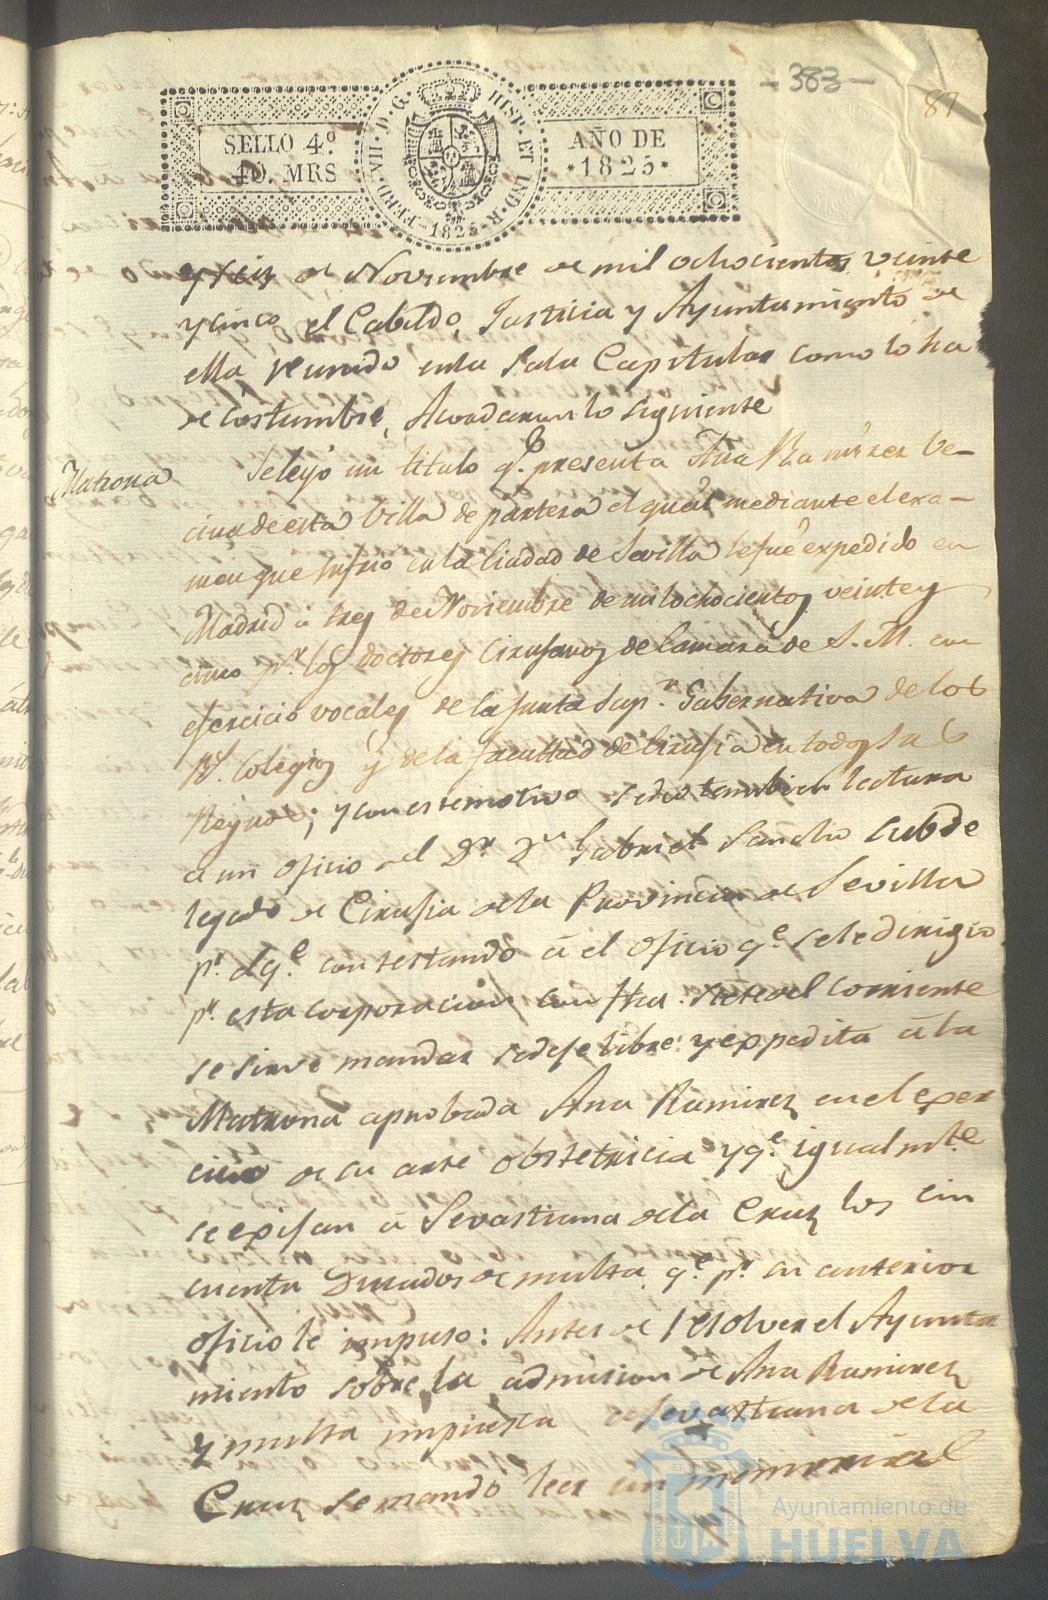 - 383 -
87
SELLO 4.º
40. MRS
FERD·VII·D·G· HISP·ET IND·R·
·1825·
AÑO DE
*1825*
y seis de Noviembre de mil ochocientos veinte
y cinco el Cabildo, Justicia y Ayuntamiento de
ella reunido enla Sala Capitular como lo ha
de costumbre, Acordaron lo siguiente
Matrona
Se leyo un titulo q.e presenta Ana Ramirez Ve-
cina de esta Villa de partera el qual mediante el exa-
men que sufrio en la Ciudad de Sevilla le fue expedido en
Madrid à tres de Noviembre de mil ochocientos veinte y
cinco p.r los doctores Cirujanos de Camara de S. M. con
ejercicio vocales de la Junta Sup.r Gubernativa de los
R.s Colegios y de la facultad de Cirujia en todos sus
Reynos; y con este motivo se dio tambien lectura
à un oficio del D.r D.n Gabriel Sancho Subde
legado de Cirujia dela Provincia de Sevilla
p.r el q.e contestando à el oficio q.e sele dirigio
p.r esta corporacion con fha. siete del corriente
se sirve mandar se deje libre y expedita à la
Matrona aprobada Ana Ramirez en el exer
cicio de su arte obstetricia y q.e igualm.te
se exijan à Sevastiana dela Cruz los cin
cuenta Ducados de multa q.e p.r su anterior
oficio le impuso: Antes de resolver el Ayunta
miento sobre la admision de Ana Ramirez
y multa impuesta a Sevastiana dela
Cruz se mando leer un memorial
Ayuntamiento de
HUELVA